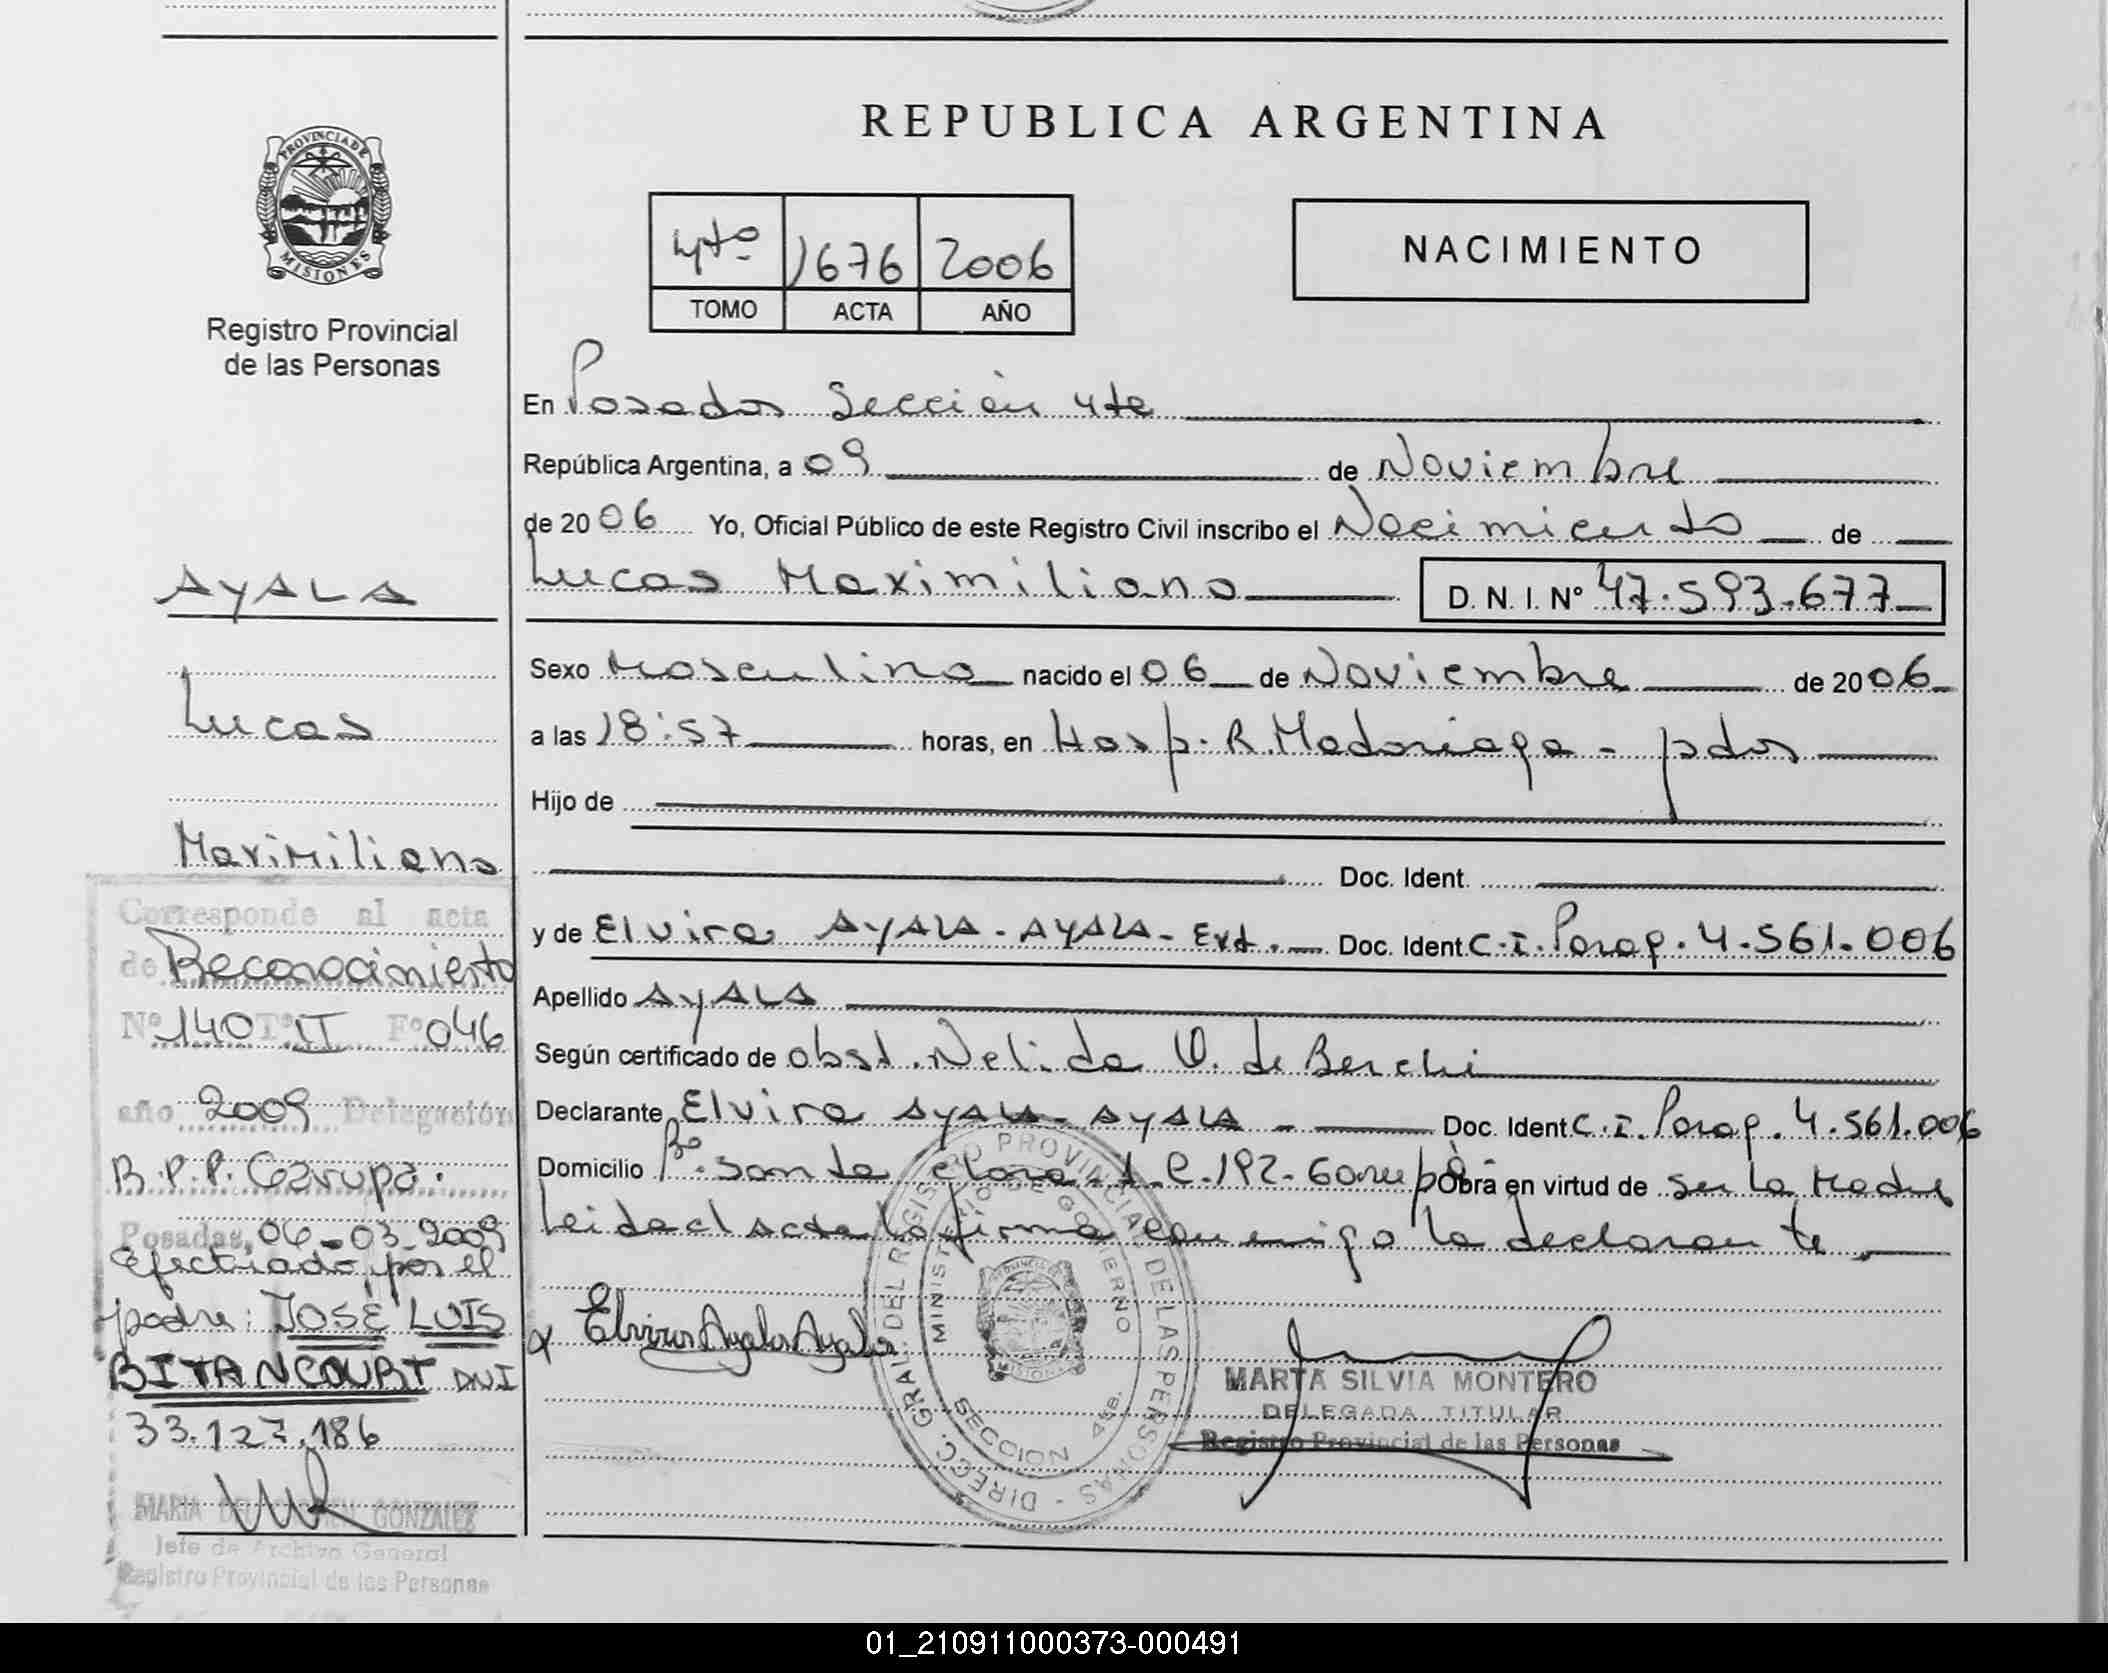 REPUBLICA ARGENTINA
PROVINCIA DE
MISIONES
Registro Provincial
de las Personas
4to 1676 2006
TOMO ACTA AÑO
NACIMIENTO
En Posadas Sección 4ta
República Argentina, a 09 de Noviembre
de 2006 Yo, Oficial Público de este Registro Civil inscribo el Nacimiento de
Lucas Maximiliano D. N. I. Nº 47.593.677
Sexo Masculino nacido el 06 de Noviembre de 2006
a las 18:57 horas, en Hosp. R. Madariaga - pdas
Hijo de
Doc. Ident.
y de Elvira AYALA - AYALA - Ext. Doc. Ident C.I. Parag. 4.561.006
Apellido AYALA
Según certificado de obst. Nelida V. de Berchi
Declarante Elvira AYALA - AYALA - Doc. Ident C.I. Parag. 4.561.006
Domicilio Bº Santa Clara 1 C. 192 - Garupá Obra en virtud de ser la Madre
Leida el acta la firma conmigo la declarante
Elvira Ayala Ayala
DIRECC. GRAL. DEL REGISTRO PROVINCIAL DE LAS PERSONAS
MINISTERIO DE GOBIERNO
SECCION 4ta.
MARTA SILVIA MONTERO
DELEGADA TITULAR
Registro Provincial de las Personas
AYALA
Lucas
Maximiliano
Corresponde al acta
de Reconocimiento
Nº 140 Tº II Fº 046
año 2009 Delegación
R.P.P. Garupá.
Posadas, 06-03-2009
Efectuado por el
padre: JOSÉ LUIS
BITANCOURT DNI
33.127.186
MARIA DEL CARMEN GONZALEZ
Jefe de Archivo General
Registro Provincial de las Personas
01_210911000373-000491